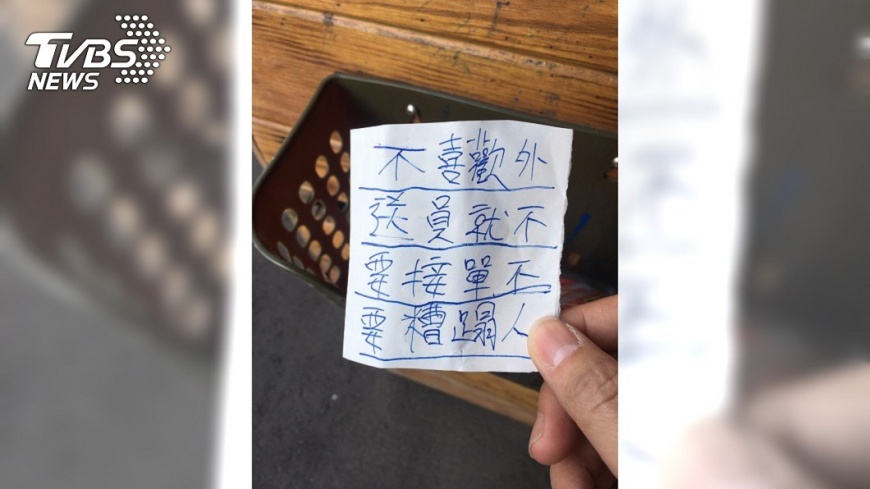 TVBS
NEWS
不喜歡外
送員就不
要接單不
要糟蹋人